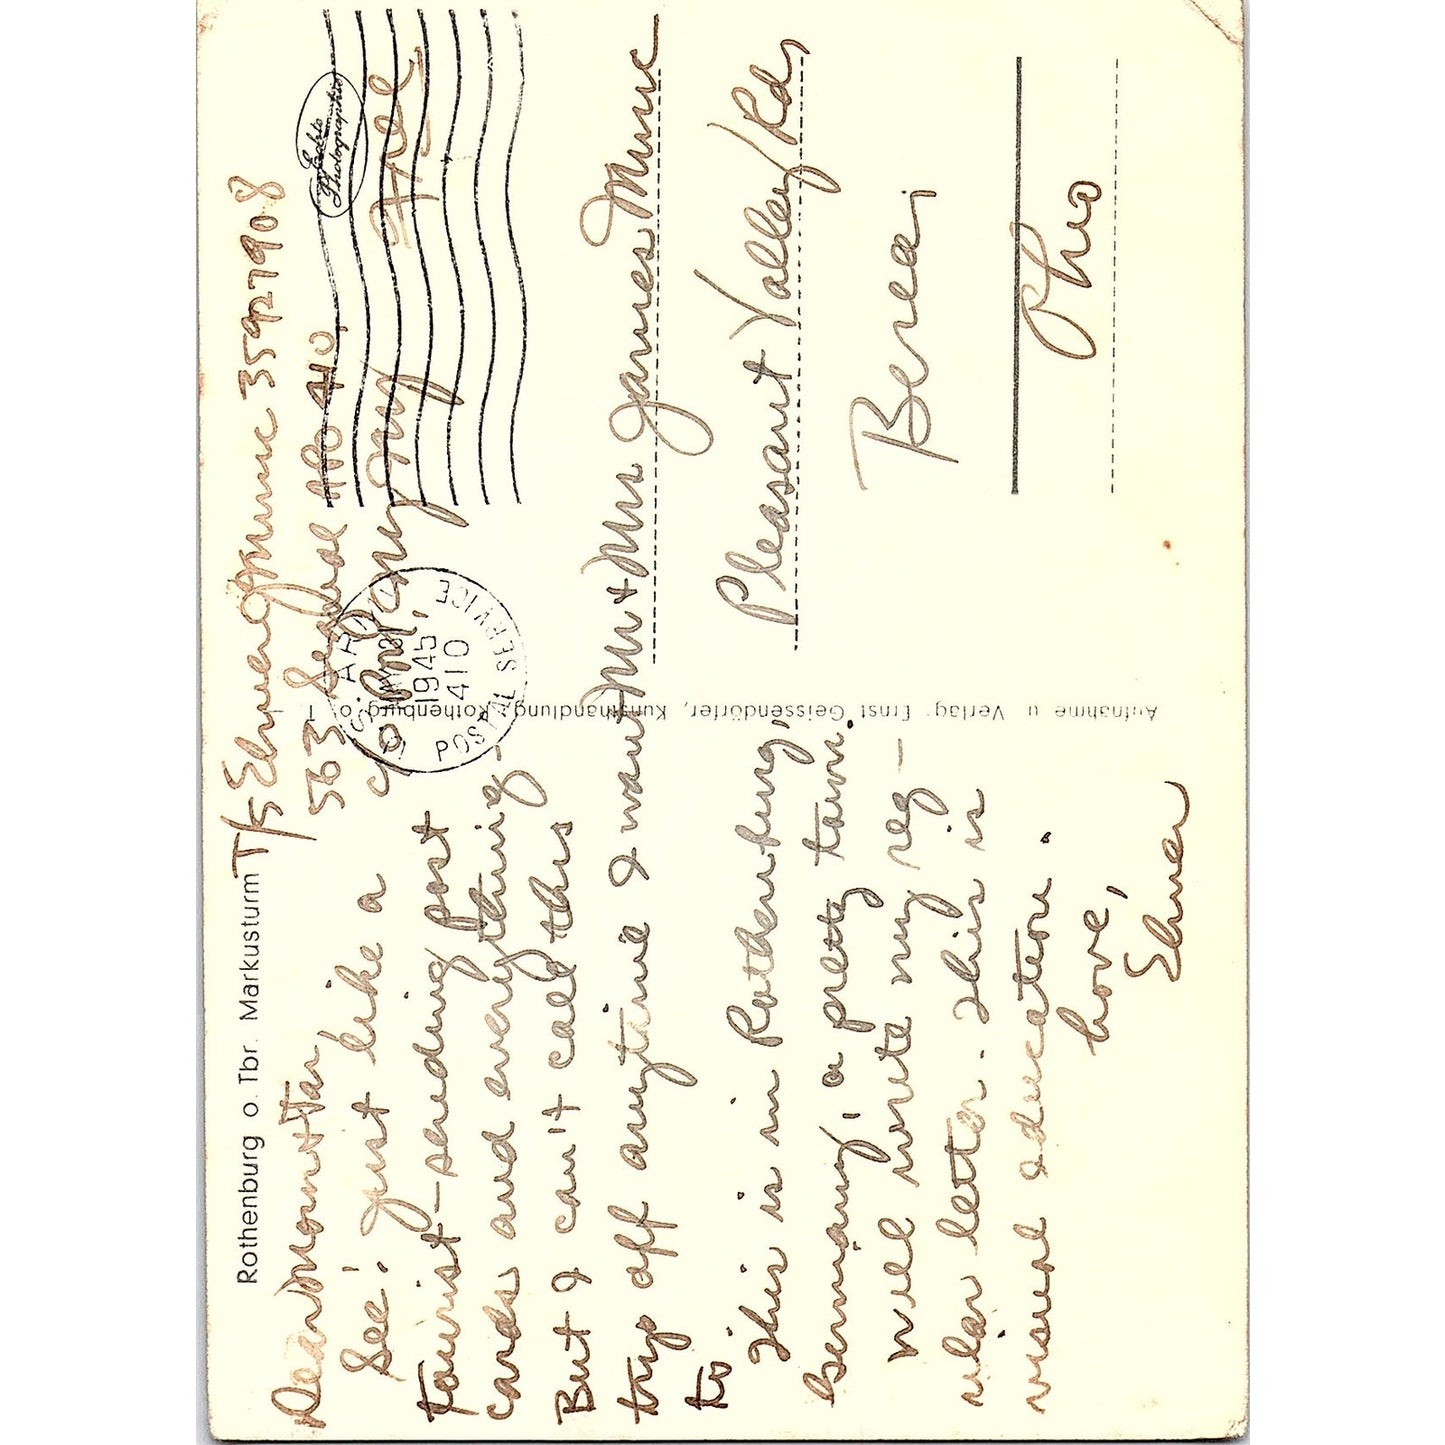 Rothenburg o. Tbr. Markusturm
T/5 Elmer J Munc 35927908
563 Signal APO 410
c/o PM, NY, NY
Free
Echte
Photographie
U.S. ARMY
1945
410
POSTAL SERVICE
Dear Mom & Tat,
See! just like a
tourist - sending post
cards and everything -
But I can't call this
trip off anytime I want
to.
This is in Rothenburg,
Germany, a pretty town.
Will write my reg -
ular letter. This is
visual education.
Love,
Elmer
Aufnahme u. Verlag: Ernst Geissendörfer, Kunsthandlung, Rothenburg o. T.
Mr & Mrs James Munc
Pleasant Valley Rd,
Berea,
Ohio